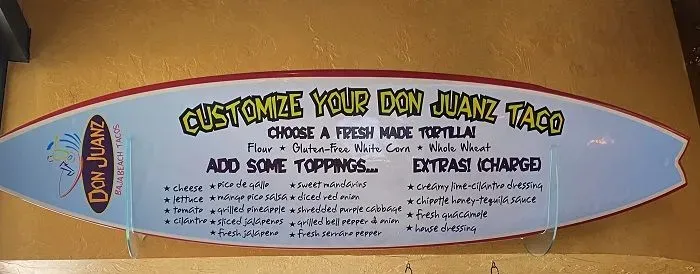 DON JUANZ
BAJA BEACH TACOS
CUSTOMIZE YOUR DON JUANZ TACO
CHOOSE A FRESH MADE TORTILLA!
Flour ★ Gluten-Free White Corn ★ Whole Wheat
ADD SOME TOPPINGS...
★ cheese
★ lettuce
★ tomato
★ cilantro
★ pico de gallo
★ mango pico salsa
★ grilled pineapple
★ sliced jalapenos
★ fresh jalapeno
★ sweet mandarins
★ diced red onion
★ shredded purple cabbage
★ grilled bell pepper & onion
★ fresh serrano pepper
EXTRAS! (CHARGE)
★ creamy lime-cilantro dressing
★ chipotle honey-tequila sauce
★ fresh guacamole
★ house dressing